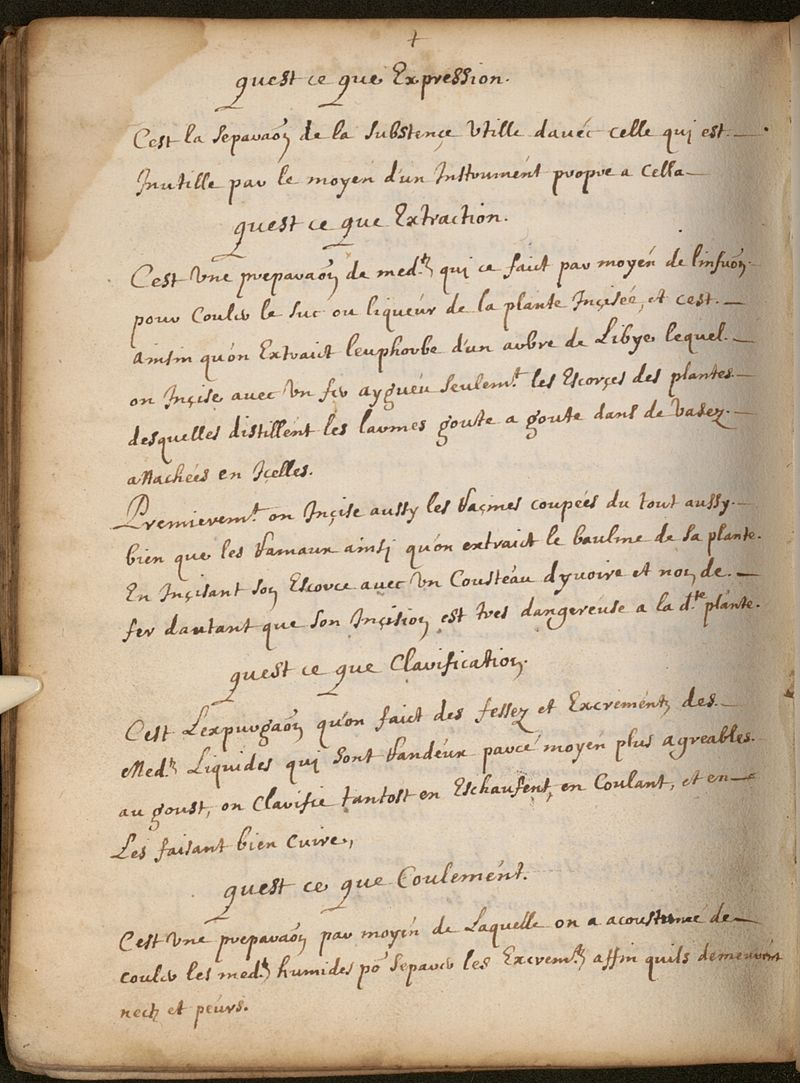 +
quest ce que Expression.
C'est la separaõn de la substençe Utille davéc celle qui est
Inutille par le moyen d'un Instrumént propre a Cella
quest ce que Extraction.
C'est Une preparaõn de med.ts qui ce faict par moyén de linfuõn
pour Couler le suc ou liqueur de la plante Inçisée, et cest
ainsin qu'on Extraict leuphorbe d'un arbre de Libye lequel
on Inçise avec Un fer aygueu seulem.t les Escorçes des plantes
desquelles distillént les larmes goute a goute dans de vasez
attachées en Jcelles.
Premierem.t on Inçise aussy les raçines coupées du tout aussy
bien que les rameaux ainsi qu'on extraict le baulme de sa plante.
En Inçisant son Escorce avec Un Cousteau dyvoire et non de
fer dautant que son Inçision est tres dangereuse a la d.te plante.
quest ce que Clarification.
C'est Lexpurgaõn qu'on faict des fessez et Excremént des
Med.ts Liquides qui sont randeux parcé moyén plus agreables
au goust, on Clarifie tantost en Eschaufent, en Coulant, et en
Les faisant bien cuire,
quest ce que Coulemént.
C'est Une preparaõn par moyén de Laquelle on a acoustumé de
couler les med.ts humides po.r separer les Excrem.ts affin quils demeurént
nectz et peurs.